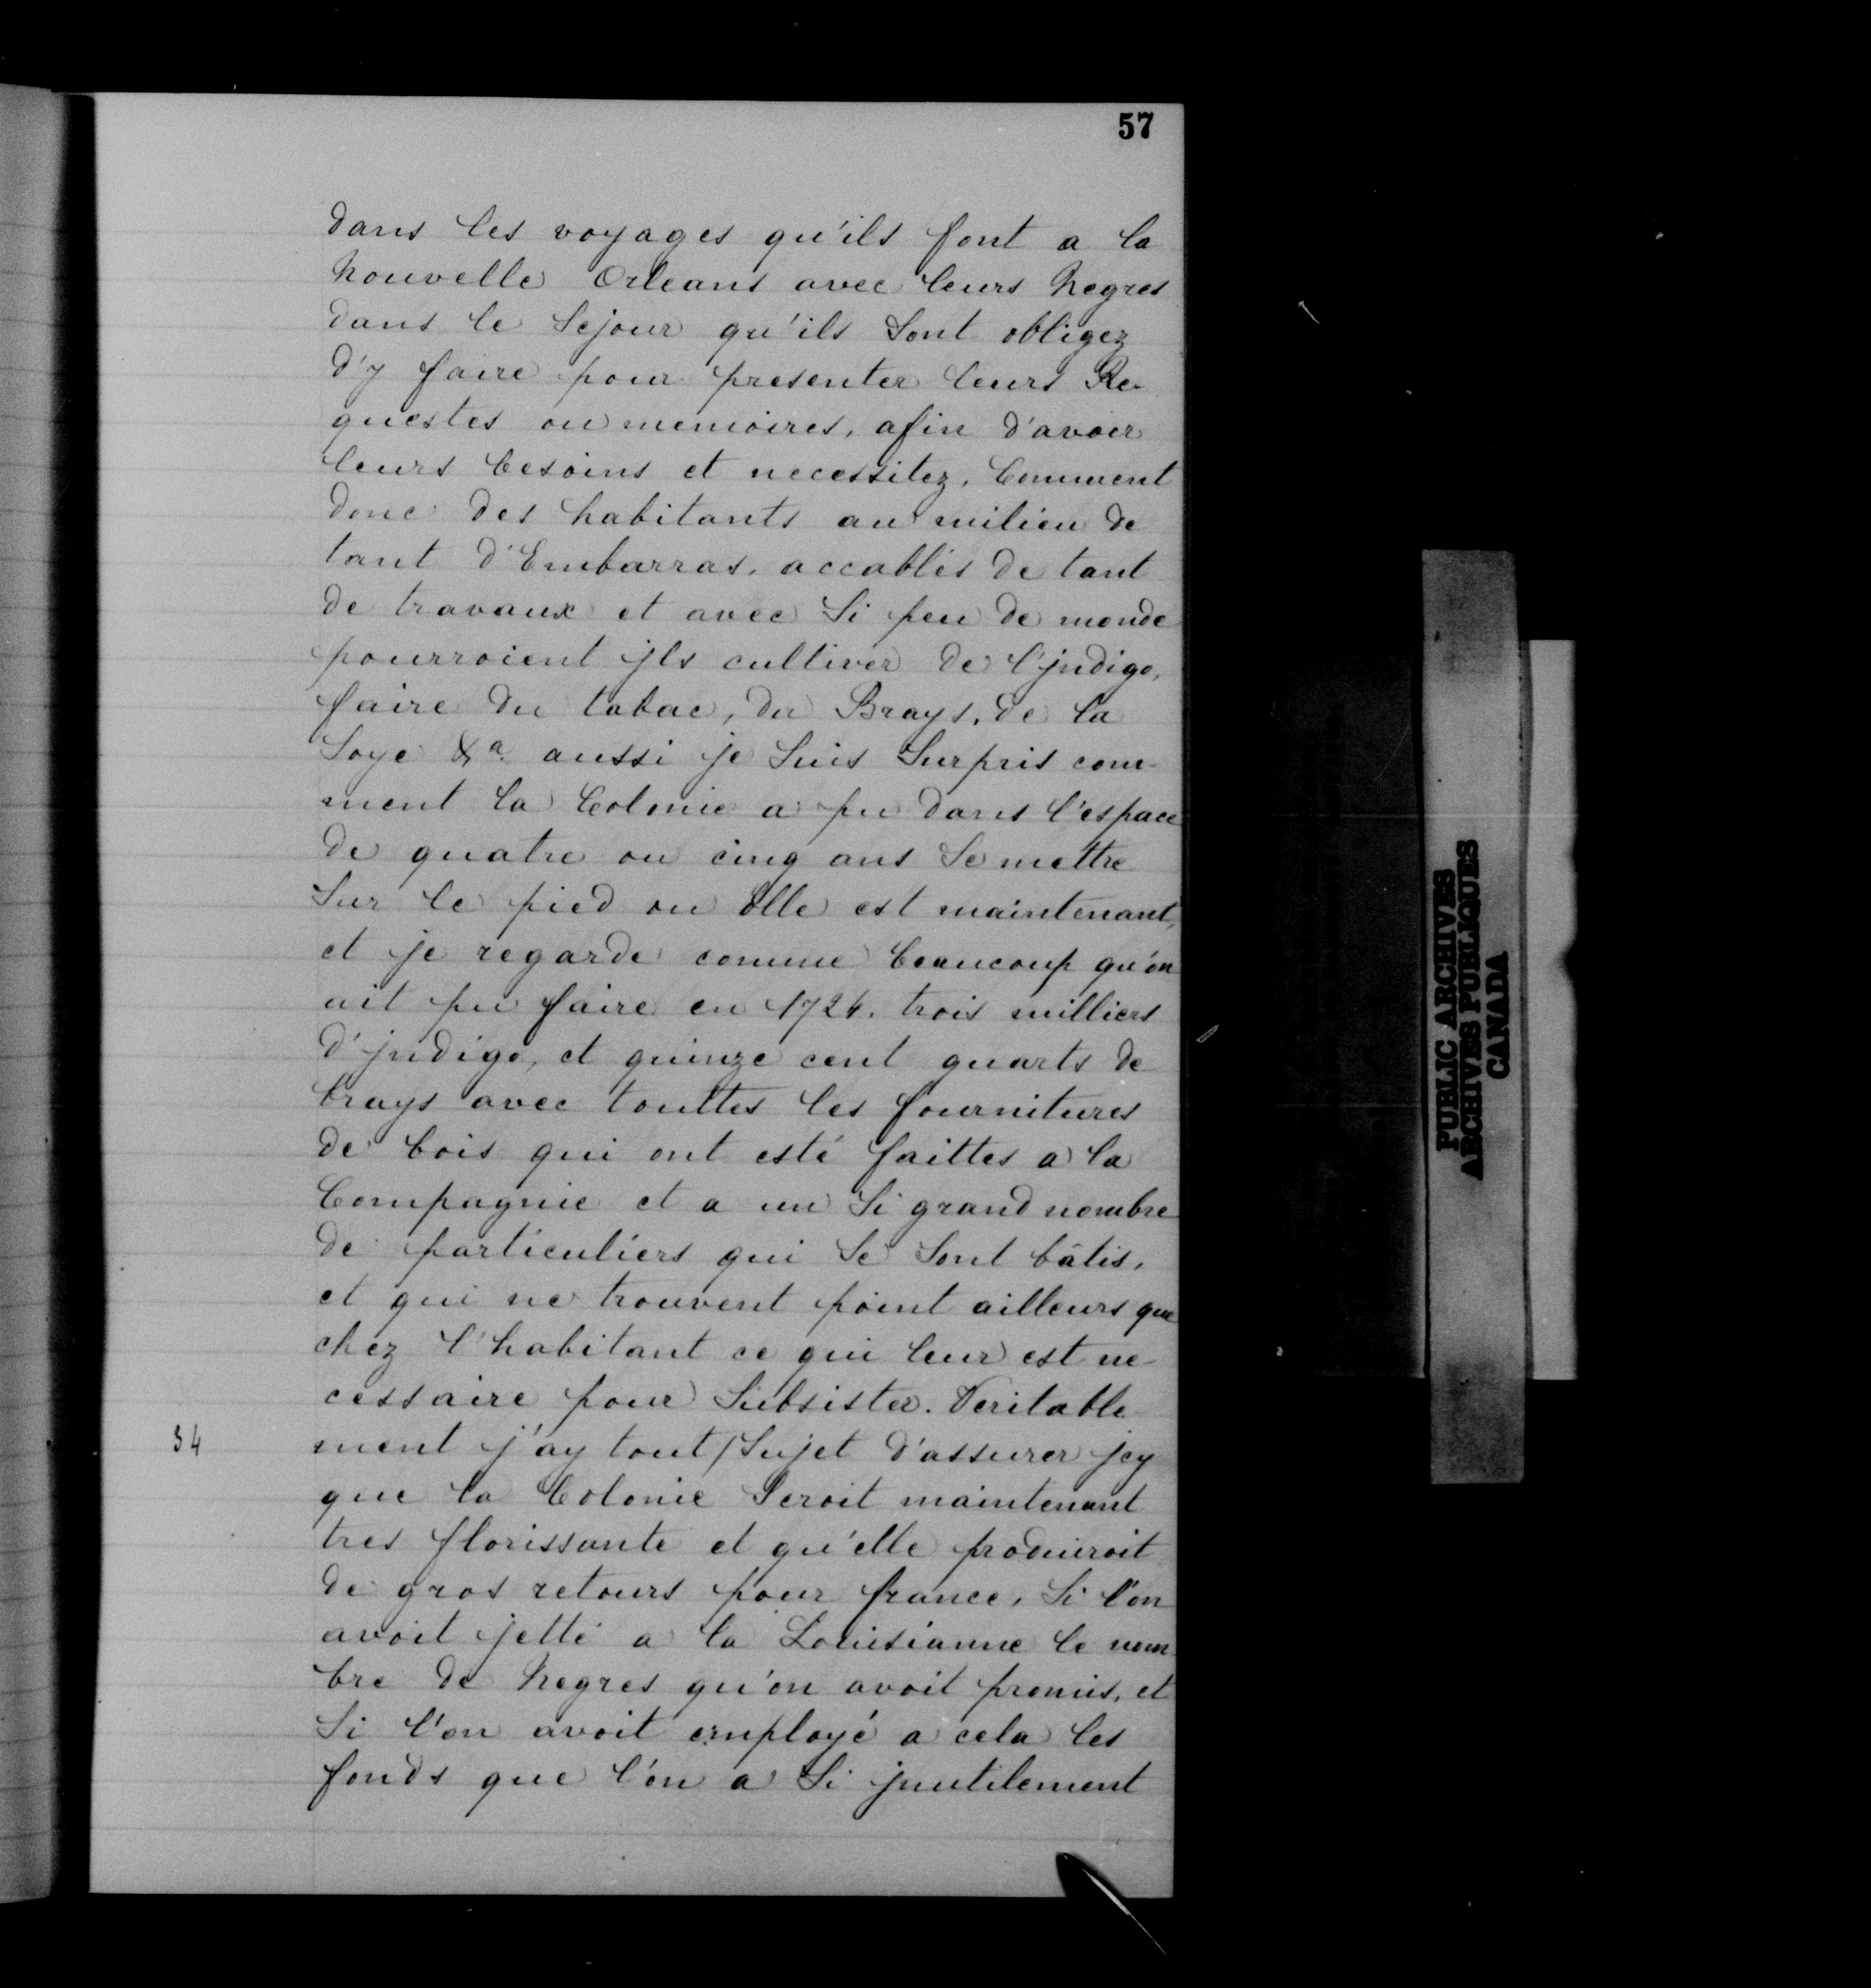 57
dans les voyages qu'ils font a la
Nouvelle Orleans avec leurs Negres
dans le Sejour qu'ils Sont obligez
d'y faire pour presenter leurs Re-
questes ou memoires, afin d'avoir
leurs besoins et necessitez, Comment
donc des habitants au milieu de
tant d'Embarras, accablés de tant
de travaux et avec Si peu de monde
pourroient jls cultiver de l'jndigo,
faire du tabac, du Brays, de la
Soye &a aussi je Suis Surpris com-
ment la Colonie a pu dans l'espace
de quatre ou cinq ans Se mettre
Sur le pied ou Elle est maintenant,
et je regarde comme beaucoup qu'on
ait pu faire en 1724. trois milliers
d'jndigo, et quinze cent quarts de
brays avec touttes les fournitures
de bois qui ont esté faittes a la
Compagnie et a un Si grand nombre
de particuliers qui Se Sont bâtis,
et qui ne trouvent point ailleurs que
chez l'habitant ce qui leur est ne-
cessaire pour Subsister. Veritable
34 ment j'ay tout/Sujet d'assurer jcy
que la Colonie Seroit maintenant
tres florissante et qu'elle produiroit
de gros retours pour france, Si l'on
avoit jetté a la Louisianne le nom
bre de Negres qu'on avoit promis, et
Si l'on avoit employé a cela les
fonds que l'on a Si jnutilement
PUBLIC ARCHIVES
ARCHIVES PUBLIQUES
CANADA